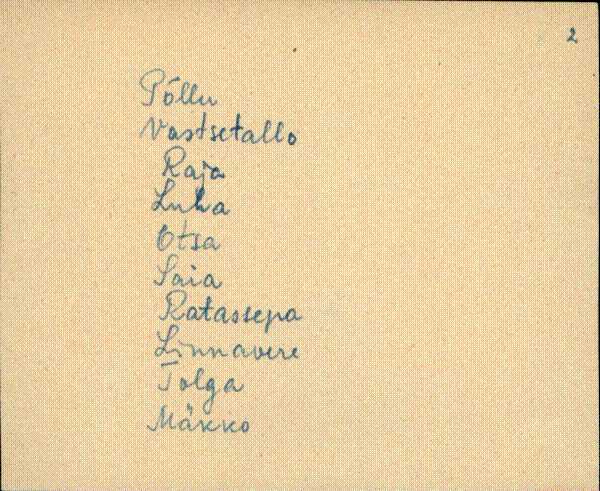 2
Põllu
Vastsetallo
Raja
Luha
Otsa
Saia
Ratassepa
Linnavere
Tolga
Mäkko